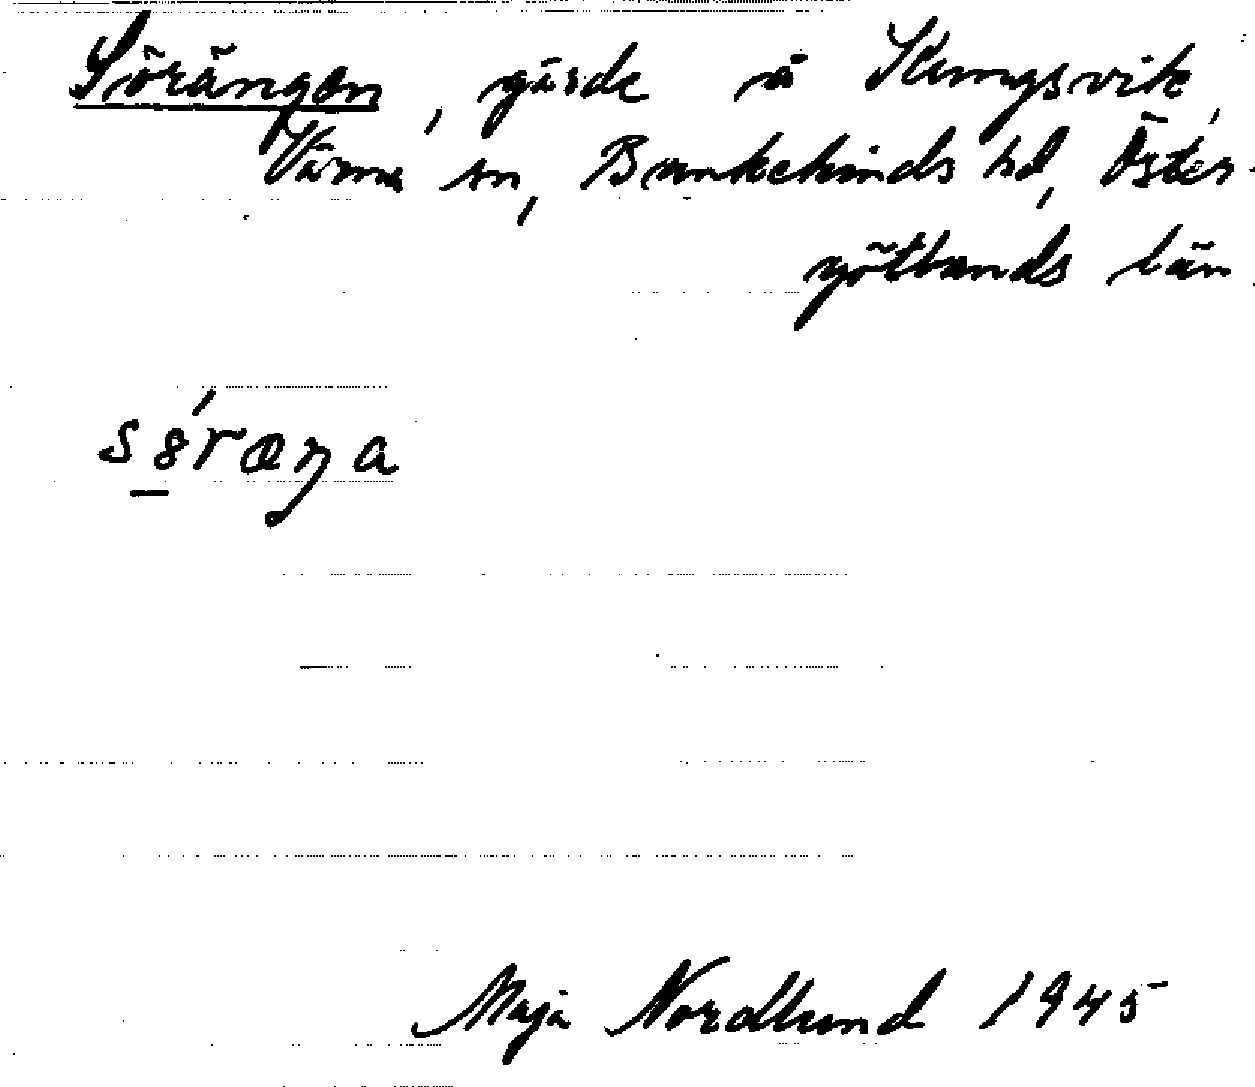 Sörängen, gärde å Kungsvik,
Värna sn, Bankekinds hd, Öster-
götlands län
s8́ræŋa
Maja Nordlund 1945